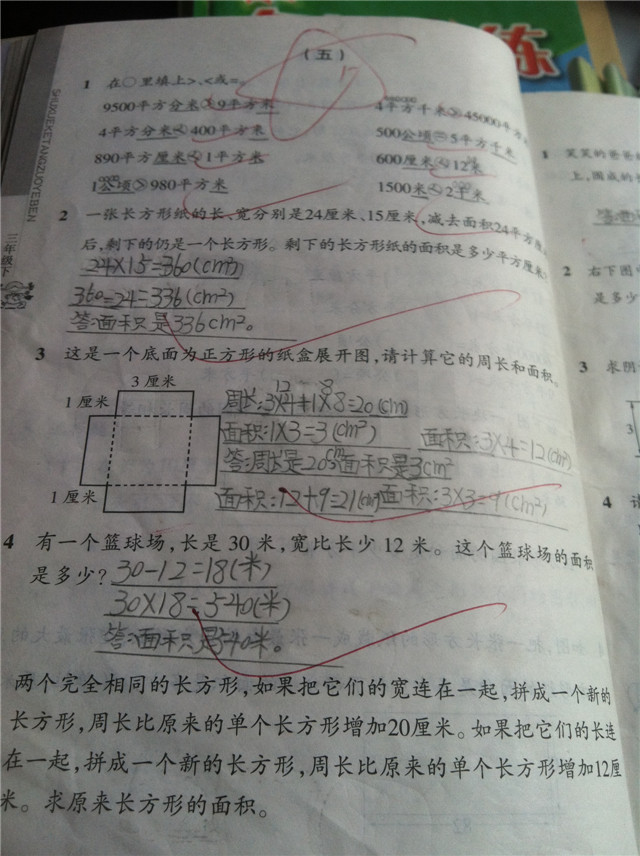 练
SHUXUEKETANGZUOYEBEN
三年级下
（五）
1 在○里填上>、<或=。
9500平方分米>9平方米
4平方千米>45000平方
4平方分米<400平方米
500公顷=5平方千米
890平方厘米<1平方米
600厘米<12米
1公顷>980平方米
1500米<2千米
2 一张长方形纸的长、宽分别是24厘米、15厘米,减去面积24平方
后,剩下的仍是一个长方形。剩下的长方形纸的面积是多少平方厘米?
24×15=360(cm²)
360-24=336(cm²)
答:面积是336cm²。
3 这是一个底面为正方形的纸盒展开图,请计算它的周长和面积。
3厘米
1厘米
1厘米
12 8
周长:3×4+1×8=20(cm)
面积:1×3=3(cm²) 面积:3×4=12(cm²)
答:周长是20cm面积是3cm²
面积:12+9=21(cm²) 面积:3×3=9(cm²)
4 有一个篮球场,长是30米,宽比长少12米。这个篮球场的面积
是多少? 30-12=18(米)
30×18=540(米)
答:面积是540米。
两个完全相同的长方形,如果把它们的宽连在一起,拼成一个新的
长方形,周长比原来的单个长方形增加20厘米。如果把它们的长连
在一起,拼成一个新的长方形,周长比原来的单个长方形增加12厘
米。求原来长方形的面积。
1 笑笑的爸爸
上,围成的
2 右下图
是多少
3 求阴
3
4